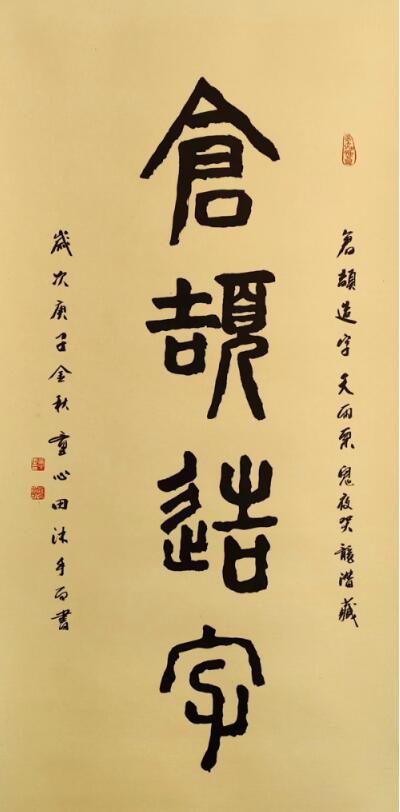 倉頡造字天雨粟鬼夜哭龍潛藏
倉頡造字
歲次庚子金秋童心田沐手而書